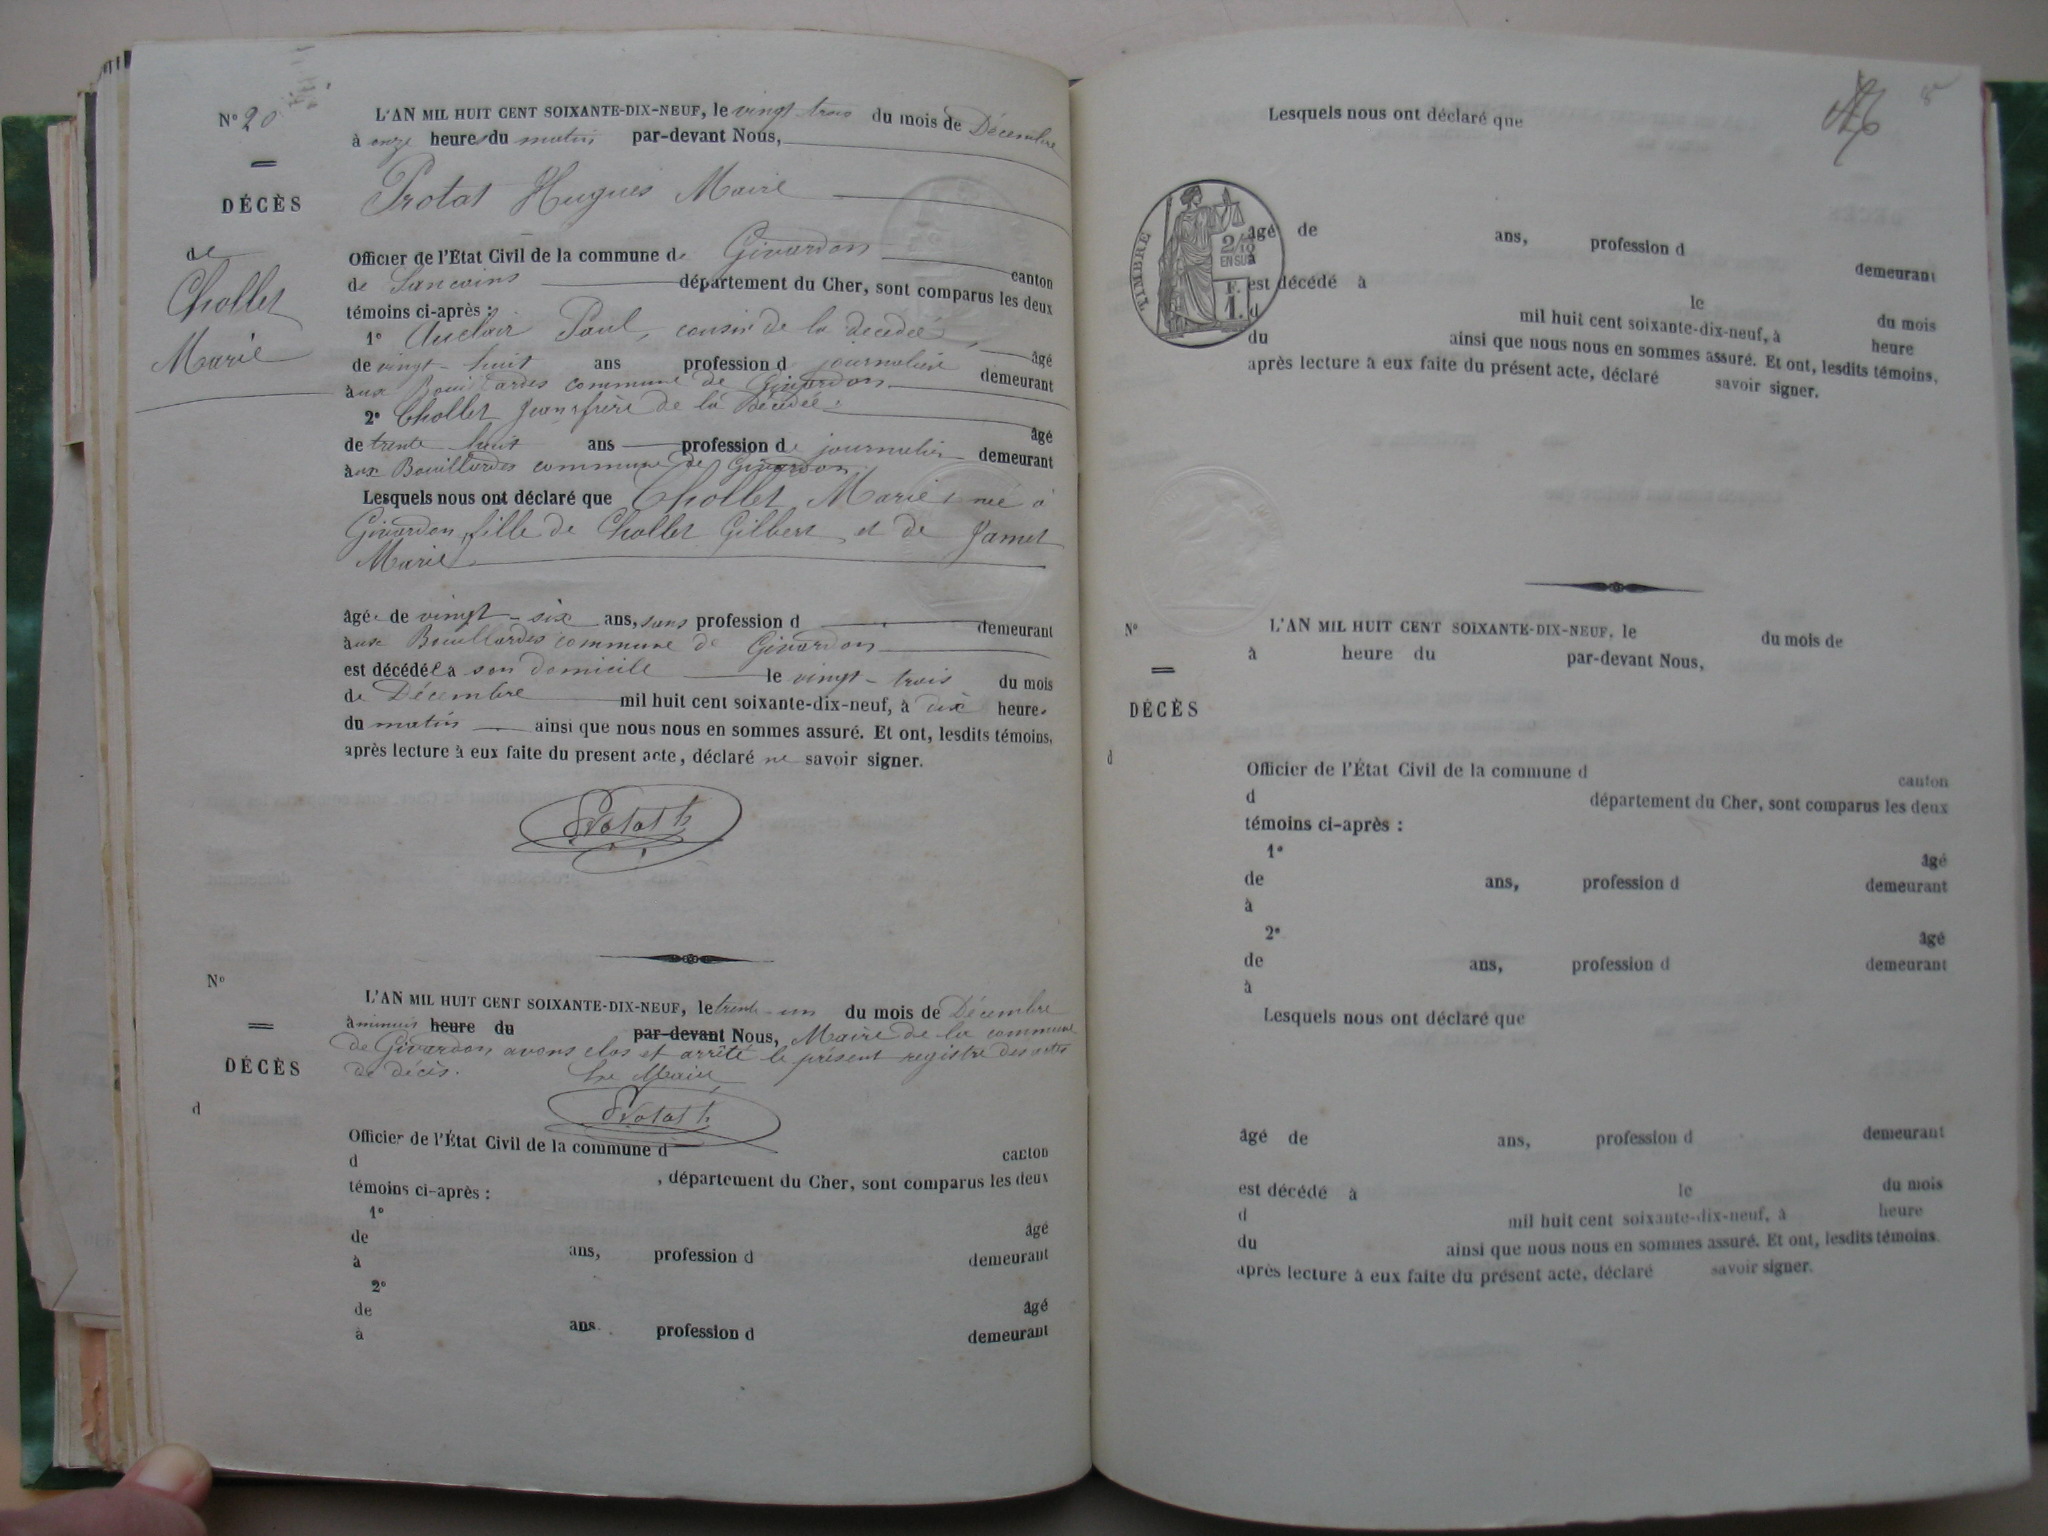 N° 20
L'AN MIL HUIT CENT SOIXANTE-DIX-NEUF, le vingt trois du mois de Décembre
à onze heures du matin par-devant Nous,
DÉCÈS
Protat Hugues Maire
de
Chollet
Marie
Officier de l'État Civil de la commune de Givardon canton
de Sancoins département du Cher, sont comparus les deux
témoins ci-après :
1° Auclair Paul, cousin de la décédée, âgé
de vingt-huit ans profession de journalier demeurant
à aux Bouillardes commune de Givardon
2° Chollet Jean frère de la décédée âgé
de trente huit ans profession de journalier demeurant
à aux Bouillardes commune de Givardon
Lesquels nous ont déclaré que Chollet Marie, née à
Givardon, fille de Chollet Gilbert et de Jamet
Marie
âgée de vingt-six ans, sans profession d demeurant
à aux Bouillardes commune de Givardon
est décédée à son domicile le vingt-trois du mois
de Décembre mil huit cent soixante-dix-neuf, à dix heures
du matin ainsi que nous nous en sommes assuré. Et ont, lesdits témoins,
après lecture à eux faite du present acte, déclaré ne savoir signer.
Protat h
N°
L'AN MIL HUIT CENT SOIXANTE-DIX-NEUF, le trente-un du mois de Décembre
à minuit heure du par-devant Nous, Maire de la commune
de Givardon avons clos et arrêté le présent registre des actes
de décès. Le Maire
DÉCÈS
Protat h
d
Officier de l'État Civil de la commune d canton
d , département du Cher, sont comparus les deux
témoins ci-après :
1° âgé
de ans, profession d demeurant
à
2° âgé
de ans profession d demeurant
à
Lesquels nous ont déclaré que
TIMBRE
2/10
EN SUS
F.
1.
âgé de ans, profession d demeurant
est décédé à le du mois
d mil huit cent soixante-dix-neuf, à heure
du ainsi que nous nous en sommes assuré. Et ont, lesdits témoins,
après lecture à eux faite du présent acte, déclaré savoir signer.
N°
L'AN MIL HUIT CENT SOIXANTE-DIX-NEUF, le du mois de
à heure du par-devant Nous,
DÉCÈS
d
Officier de l'État Civil de la commune d canton
d département du Cher, sont comparus les deux
témoins ci-après :
1° âgé
de ans, profession d demeurant
à
2° âgé
de ans, profession d demeurant
à
Lesquels nous ont déclaré que
âgé de ans, profession d demeurant
est décédé à le du mois
d mil huit cent soixante-dix-neuf, à heure
du ainsi que nous nous en sommes assuré. Et ont, lesdits témoins.
après lecture à eux faite du présent acte, déclaré savoir signer.